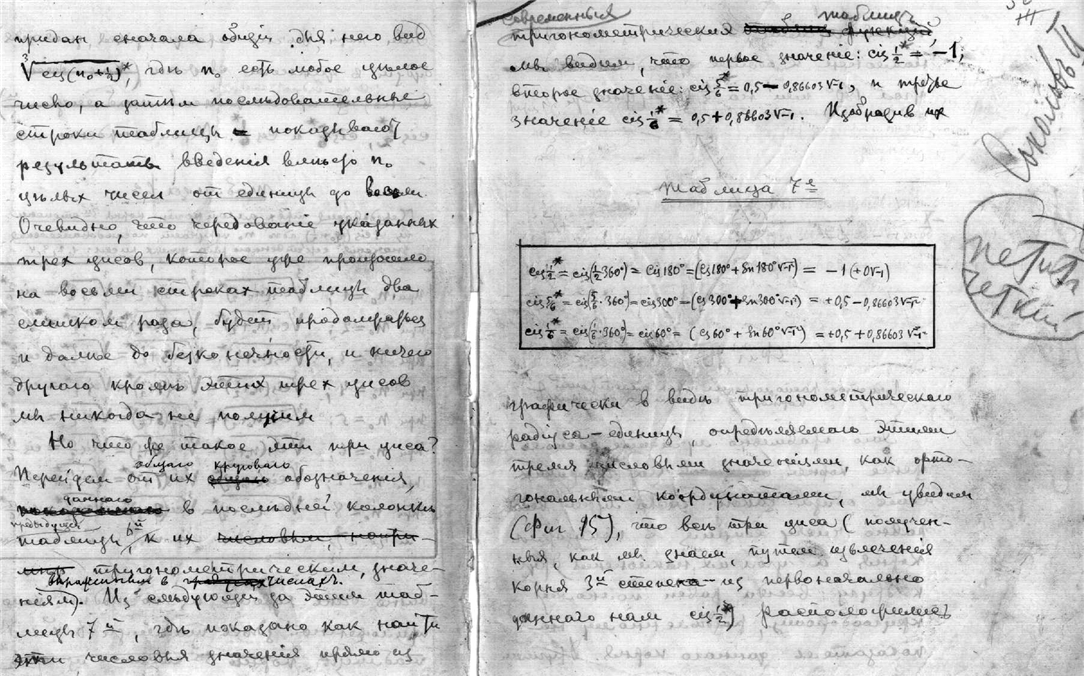 придан сначала общий для него вид
∛cis(n₀+½)*, гдѣ n₀ есть любое цѣлое
число, а затѣм послѣдовательные
строки таблицы показывают
результат введенія вмѣсто n₀
цѣлых чисел от единицы до восьми.
Очевидно, что чередованіе указанных
трех цисов, которое уже произошло
на восьми строках таблицы два
слишком раза, будет продолжаться
и далѣе до безконечности, и ничего
другого кромѣ этих трех цисов
мы никогда не получим
Но что же такое эти три циса?
Перейдем от их общаго кругового обозначения,
даннаго в послѣдней колонкѣ
предыдущей таблицы 6й, к их
тригонометрическим, значе-
ніям выраженным в числах. Из слѣдующей за этим таб-
лицы 7й, гдѣ показано как найти
эти числовыя значенія прямо из
современныя
тригонометрических таблиц
мы видим, что первое значение: cis½* = −1;
второе значение: cis⅚* = 0,5 − 0,86603√-1, и третье
значение cis⅙* = 0,5 + 0,86603√-1. Изобразив их
Соколовъ П
Петит
четкий
Таблица 7я
cis½* = cis(½·360°) = cis180° = (cs180° + sn180°√-1) = −1(+0√-1)
cis⅚* = cis(⅚·360°) = cis300° = (cs300° + sn300°√-1) = +0,5 − 0,86603√-1
cis⅙* = cis(⅙·360°) = cis60° = (cs60° + sn60°√-1) = +0,5 + 0,86603√-1
графически в видѣ тригонометрическаго
радіуса-единицы, опредѣляемаго этими
тремя числовыми значеніями, как орто-
гональными координатами, мы увидим
(Фиг 15), что всѣ три циса (получен-
ныя, как мы знаем, путем извлеченія
корня 3й степени из первоначально
даннаго нам cis½*) расположились